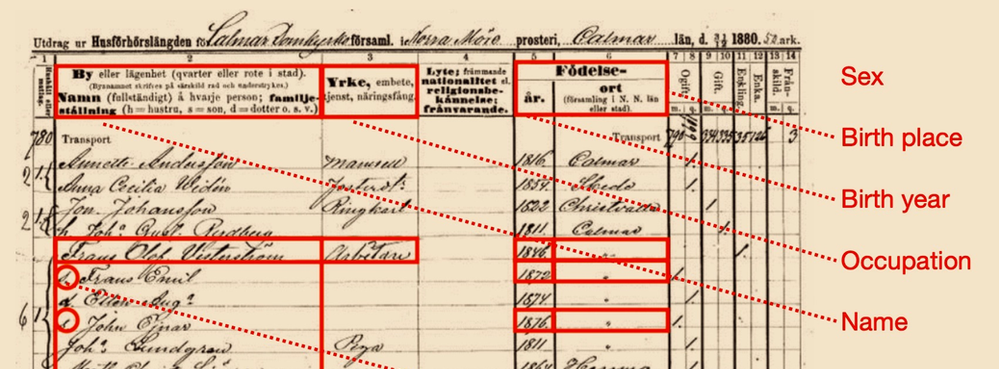 Utdrag ur Husförhörslängden för Calmar Domkyrko församl. i Norra Möre prosteri, Calmar län, d. 31/12 1880. 52 ark.
1 2 3 4 5 6 7 8 9 10 11 12 13 14
By eller lägenhet (qvarter eller rote i stad).
(Bynamnet skrifves på särskild rad och understrykes.)
Namn (fullständigt) å hvarje person; familje-
ställning (h = hustru, s = son, d = dotter o. s. v.)
Yrke, embete,
tjenst, näringsfång.
Lyte; främmande
nationalitet el.
religionsbe-
kännelse;
frånvarande.
Födelse-
år.
ort
(församling i N. N. län
eller stad).
Ogift.
Gift.
Enkling.
Enka.
Från-
skild.
m. q. m. q. m. q.
780 Transport Transport 3
2 Annette Andersson Mamsell 1816 Calmar 1.
Anna Cecilia Widén 1854 Skede 1.
2 Jon Johansson Ringkarl 1822 Christvalla 1
h. Joh:a Gust. Rydberg 1811 Calmar 1.
Frans Olof Vesterström Arbetare 1846 " 1.
s. Frans Emil 1872 " 1.
d. Ellen Aug:a 1874 " 1.
6 s. John Einar 1876 " 1.
Joh:a Lundgren Piga 1811 " 1.
Sex
Birth place
Birth year
Occupation
Name